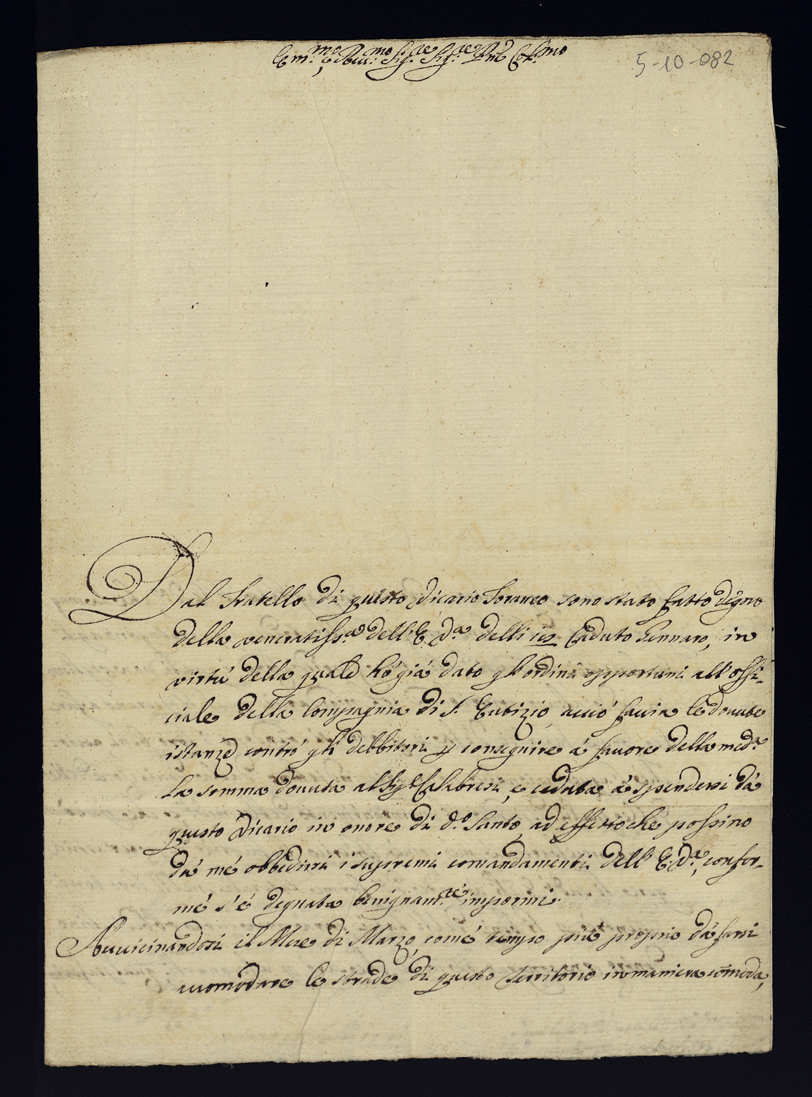 Em.mo e Rev.mo Sig.re Sig.re Pne Col.mo
5-10-082
Dal Fratello di questo Vicario Foraneo sono stato fatto degno
della veneratiss.a dell'E. V.a delli 12 caduto Gennaro, in
virtù della quale hò già dato gl'ordini opportuni all'offi-
ciale della Compagnia di S. Eutizio, acciò facia le dovute
istanze contro gli debbitori p conseguire à favore della med.a
la somma dovuta al Sig.e Calabresi, e ceduta à spendersi dà
questo Vicario in onore di d.o Santo, ad effetto che possino
dà me obbedirsi i supremi comandamenti dell'E. V.a, confor-
me s'è degnata benignam.te impormi.
Avvicinandosi il Mese di Marzo, come tempo più proprio dà farsi
accomodare le strade di questo Territorio in maniera comoda,